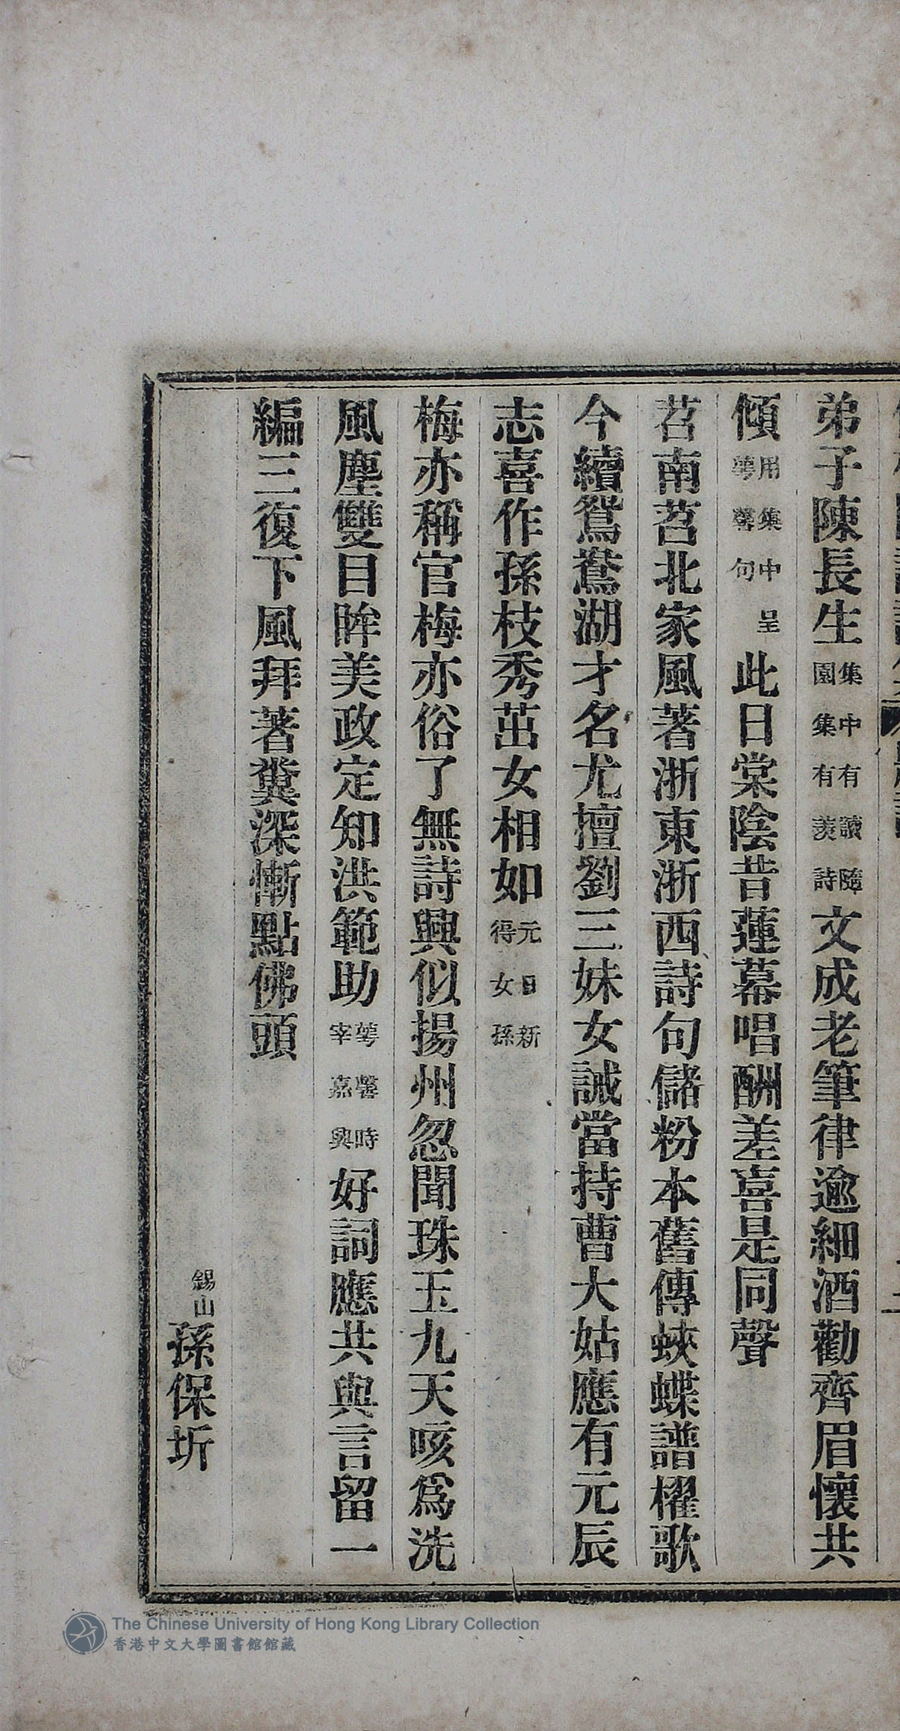 弟子陳長生集中有讀隨園集有羨詩文成老筆律逾細酒勸齊眉懷共
傾用集中萼馨句呈此日棠陰昔蓮幕唱酬差喜是同聲
苕南苕北家風著浙東浙西詩句儲粉本舊傳蛺蝶譜櫂歌
今續鴛鴦湖才名尤擅劉三妹女誡當持曹大姑應有元辰
志喜作孫枝秀茁女相如元日新得女孫
梅亦稱官梅亦俗了無詩興似揚州忽聞珠玉九天咳爲洗
風塵雙目眸美政定知洪範助萼馨時宰嘉興好詞應共與言留一
編三復下風拜著糞深慚點佛頭
錫山孫保圻
The Chinese University of Hong Kong Library Collection
香港中文大學圖書館館藏